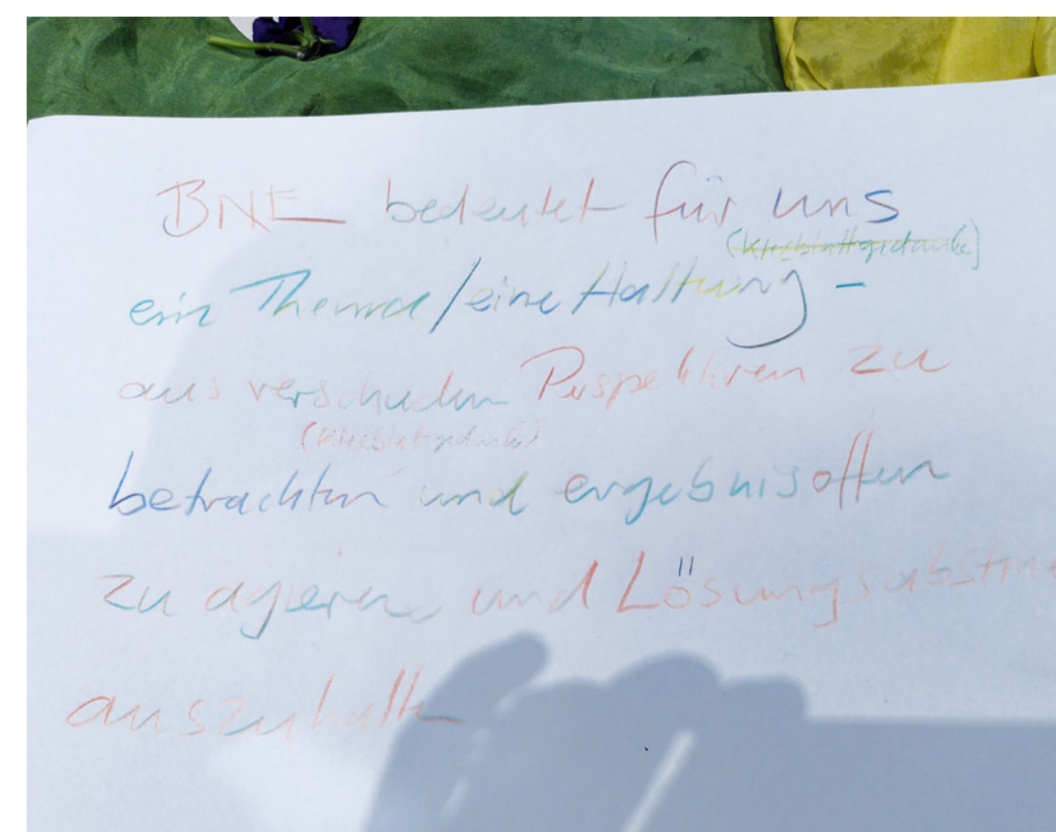 BNE bedeutet für uns
(Kleeblattgedanke)
ein Thema/eine Haltung -
aus verschieden Perspektiven zu
(Kleeblattgedanke)
betrachten und ergebnisoffen
zu agieren und Lösungsabstine
auszuhalten